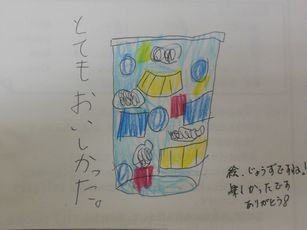 とてもおいしかった。
絵、じょうずですね!
楽しかったです
ありがとう!